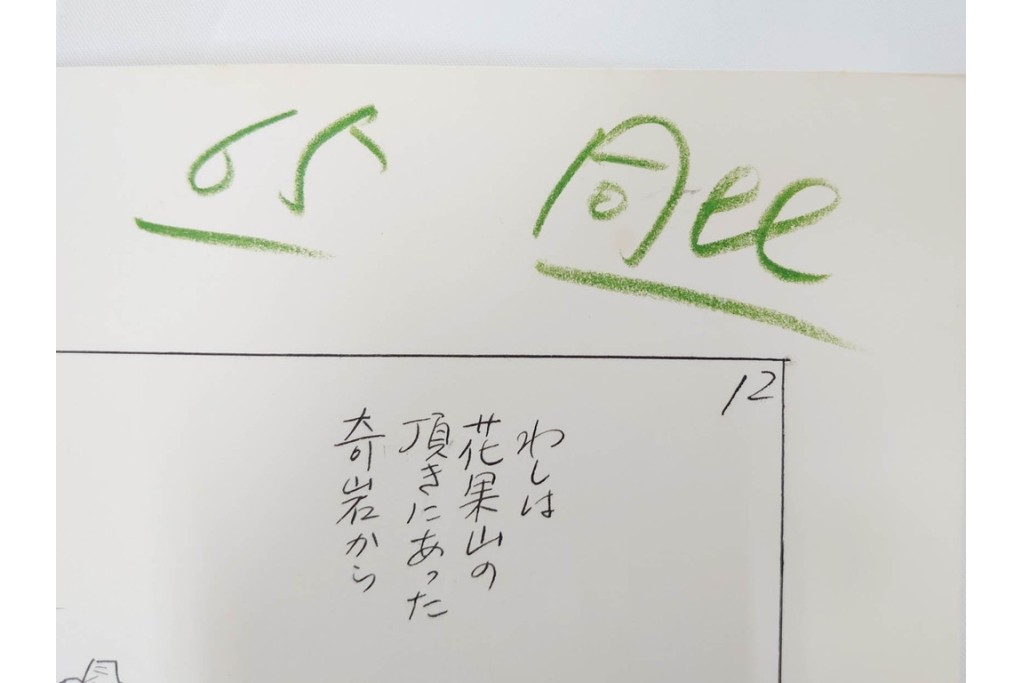 12
わしは
花果山の
頂きにあった
奇岩から